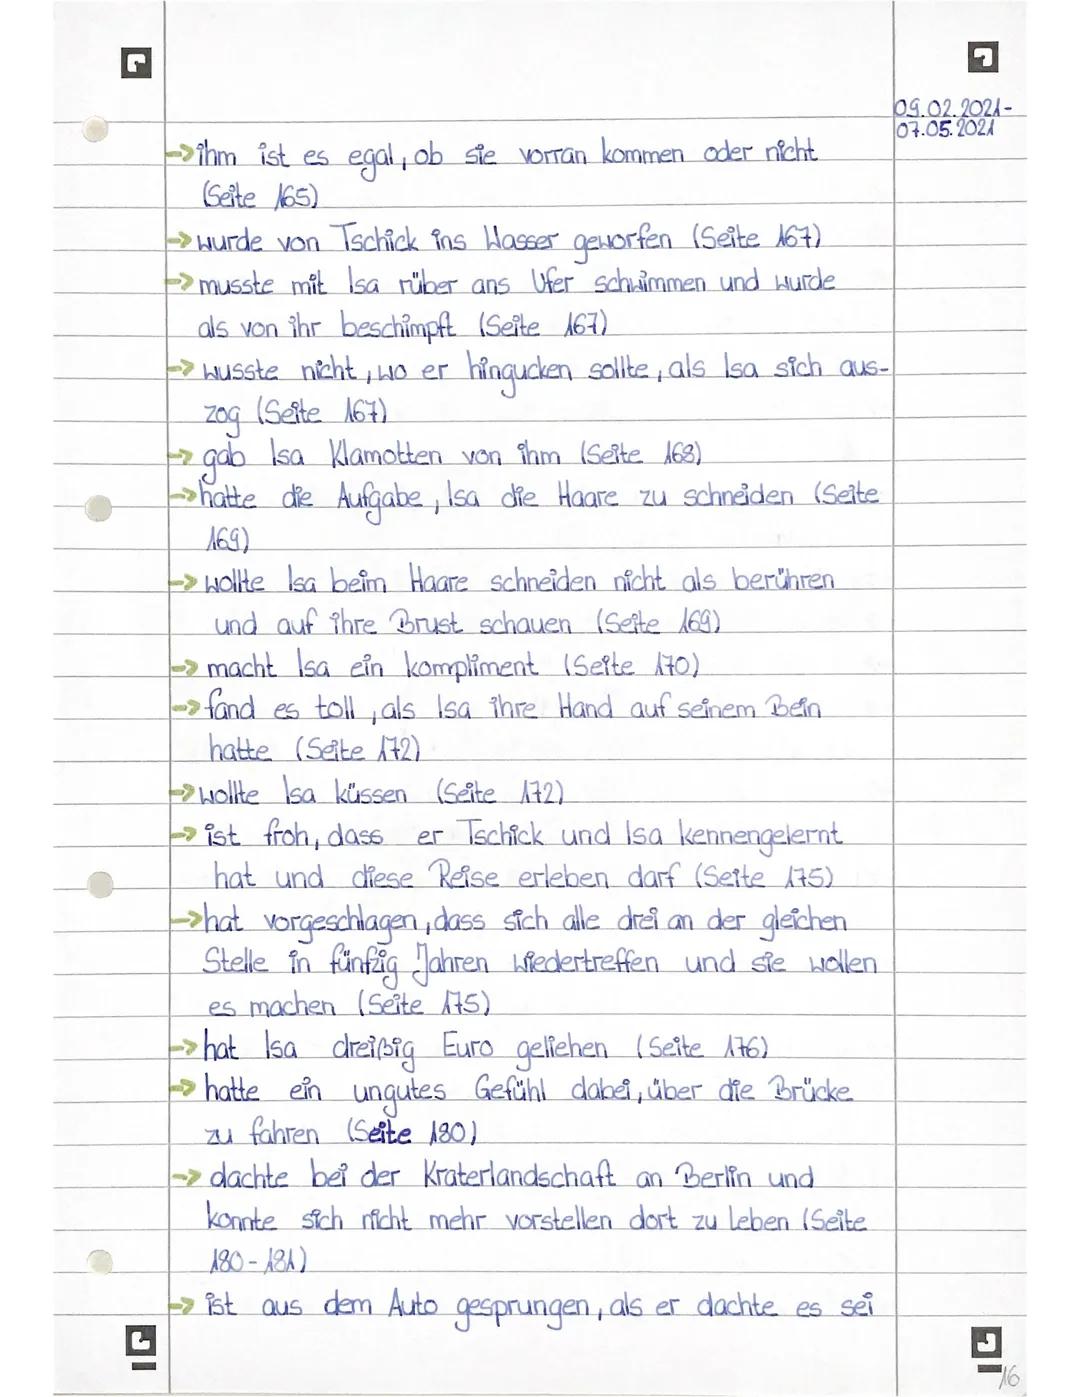 09.02.2021-
07.05.2021
→ihm ist es egal, ob sie vorran kommen oder nicht
(Seite 165)
→wurde von Tschick ins Wasser geworfen (Seite 167)
→musste mit Isa rüber ans Ufer schwimmen und wurde
als von ihr beschimpft (Seite 167)
→wusste nicht, wo er hingucken sollte, als Isa sich aus-
zog (Seite 167)
→gab Isa Klamotten von ihm (Seite 168)
→hatte die Aufgabe, Isa die Haare zu schneiden (Seite
169)
→wollte Isa beim Haare schneiden nicht als berühren
und auf ihre Brust schauen (Seite 169)
→macht Isa ein kompliment (Seite 170)
→fand es toll, als Isa ihre Hand auf seinem Bein
hatte (Seite 172)
→wollte Isa küssen (Seite 172)
→ist froh, dass er Tschick und Isa kennengelernt
hat und diese Reise erleben darf (Seite 175)
→hat vorgeschlagen, dass sich alle drei an der gleichen
Stelle in fünfzig Jahren wiedertreffen und sie wollen
es machen (Seite 175)
→hat Isa dreißig Euro geliehen (Seite 176)
→hatte ein ungutes Gefühl dabei, über die Brücke
zu fahren (Seite 180)
→dachte bei der Kraterlandschaft an Berlin und
konnte sich nicht mehr vorstellen dort zu leben (Seite
180-181)
→ist aus dem Auto gesprungen, als er dachte es sei
/16